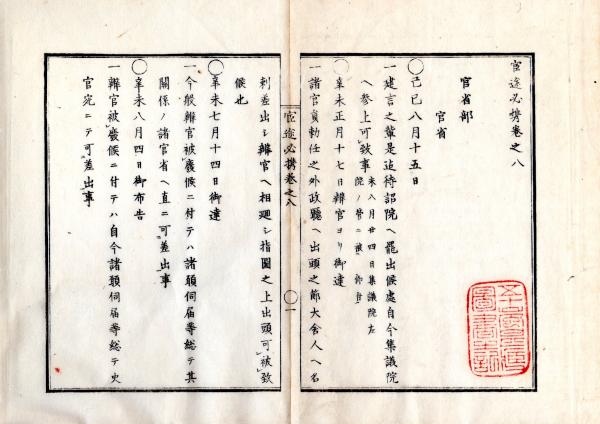 官途必携巻之八
官省部
官省
◯己巳八月十五日
一建言之輩是迄待詔院ヘ罷出候處自今集議院
ヘ参上可致事
未八月廿四日集議院左
院ノ管ニ被
◯辛未正月十七日辨官ヨリ御達
一諸官員勅任之外政廳ヘ出頭之節大舎人ヘ名
官途必携巻之八
◯一
刺差出シ辨官ヘ相廻シ指圖之上出頭可被致
候也
◯辛未七月十四日御達
一今般辨官被廢候ニ付テハ諸願伺届等総テ其
關係ノ諸官省ヘ直ニ可差出事
◯辛未八月四日御布告
一辨官被廢候ニ付テハ自今諸願伺届等総テ史
官宛ニテ可差出事